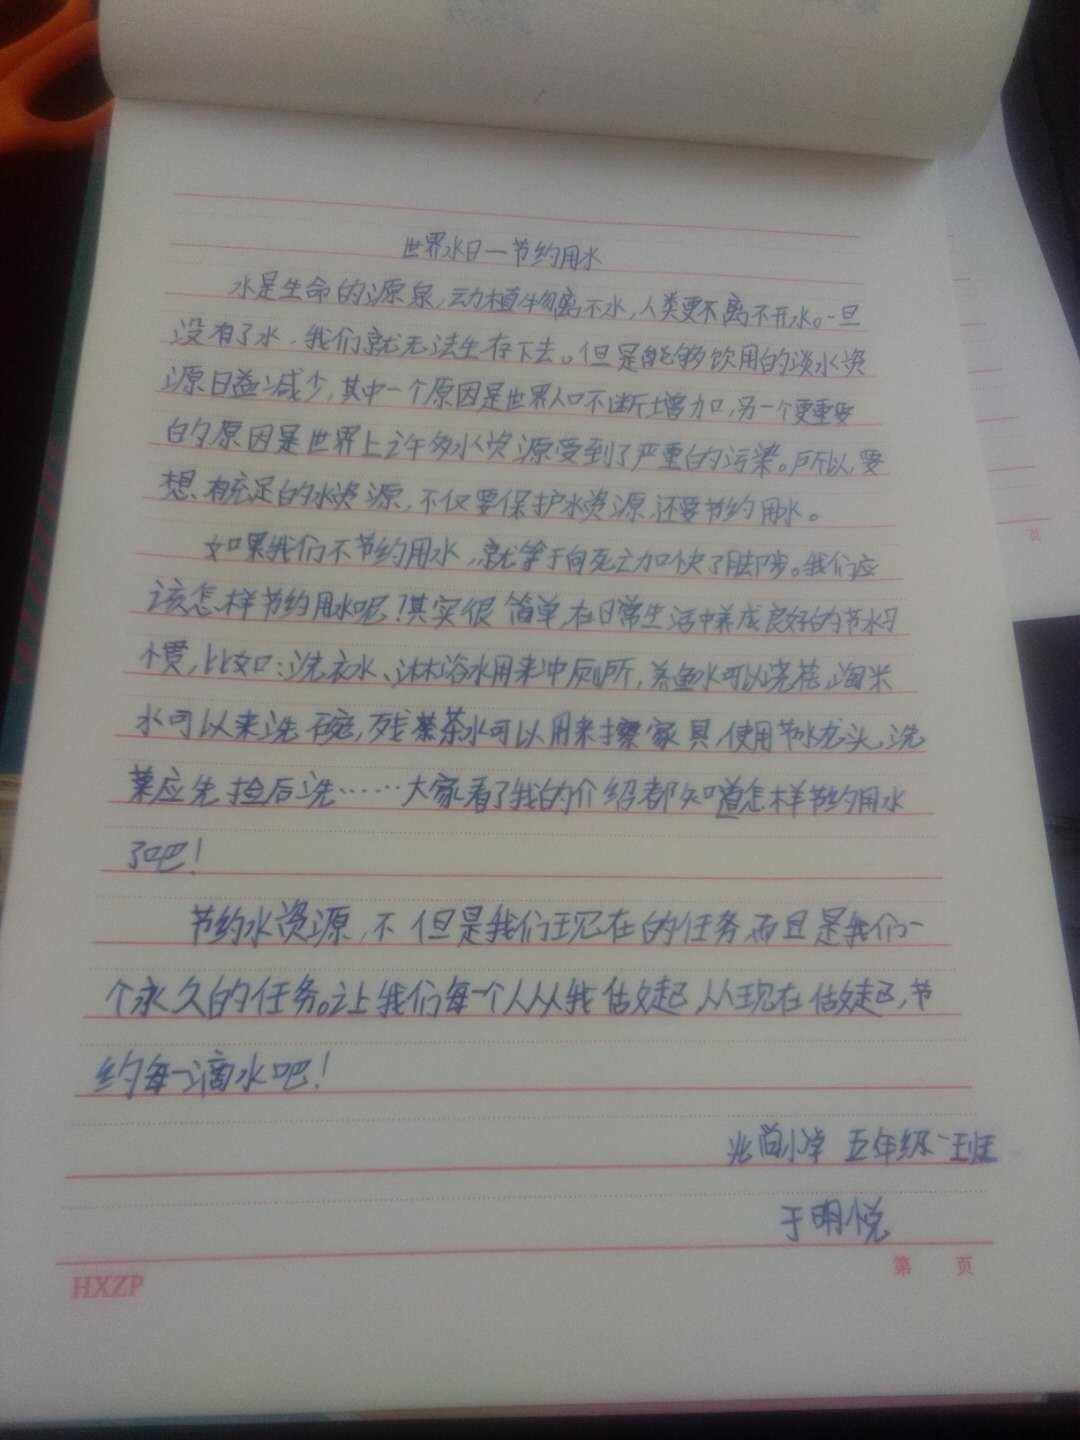 世界水日一节约用水
水是生命的源泉，动植物离不水，人类更不离不开水。一旦
没有了水，我们就无法生存下去。但是能够饮用的淡水资
源日益减少，其中一个原因是世界人口不断增加，另一个更重要
的原因是世界上许多水资源受到了严重的污染。所以，要
想有充足的水资源，不仅要保护水资源，还要节约用水。
如果我们不节约用水，就等于向死亡加快了脚步。我们应
该怎样节约用水呢？其实很简单，在日常生活中养成良好的节水习
惯，比如：洗衣水、沐浴水用来冲厕所，养鱼水可以浇花，淘米
水可以来洗碗，残茶水可以用来擦家具，使用节水龙头，洗
菜应先捡后洗……大家看了我的介绍都知道怎样节约用水
了吧！
节约水资源，不但是我们现在的任务，而且是我们一
个永久的任务。让我们每一个人从我做起，从现在做起，节
约每一滴水吧！
尚小学 五年级一班
于明悦
HXZP
第 页